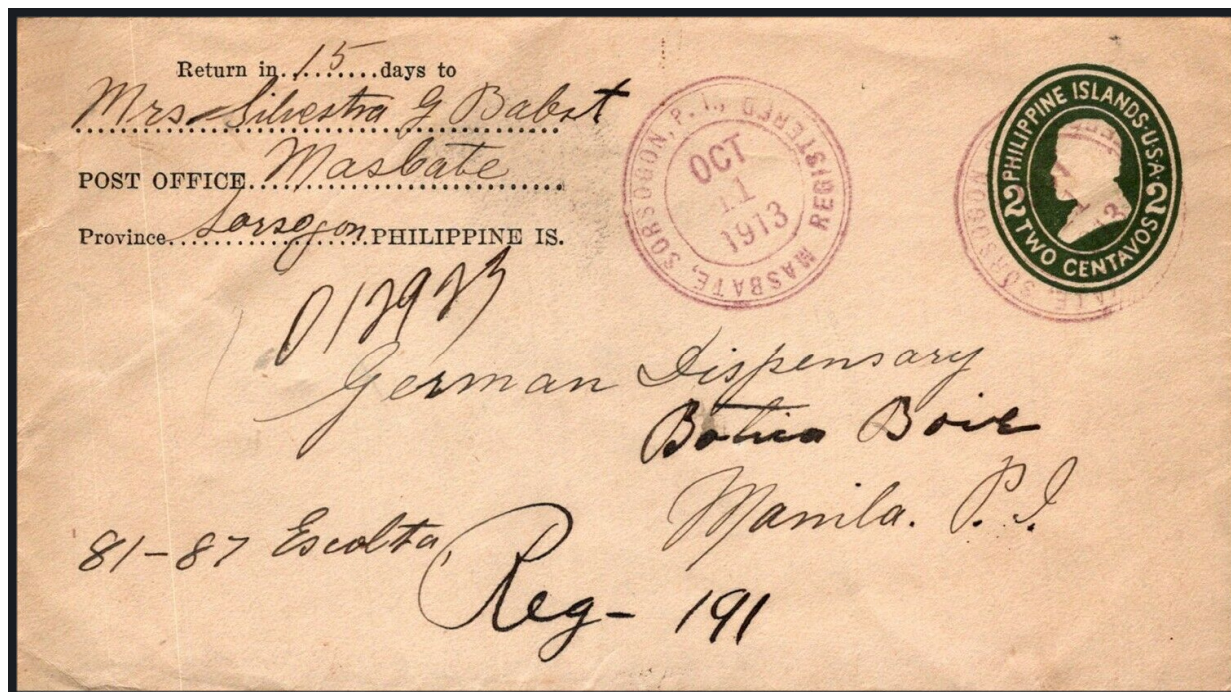 Return in 15 days to
Mrs Silvestra G Babst
POST OFFICE Masbate
Province Sorsogon PHILIPPINE IS.
MASBATE, SORSOGON, P. I., REGISTERED
OCT
11
1913
PHILIPPINE ISLANDS·U.S.A·
2 TWO CENTAVOS 2
German Dispensary
Botica Boie
Manila. P.I.
81-87 Escolta
Reg- 191